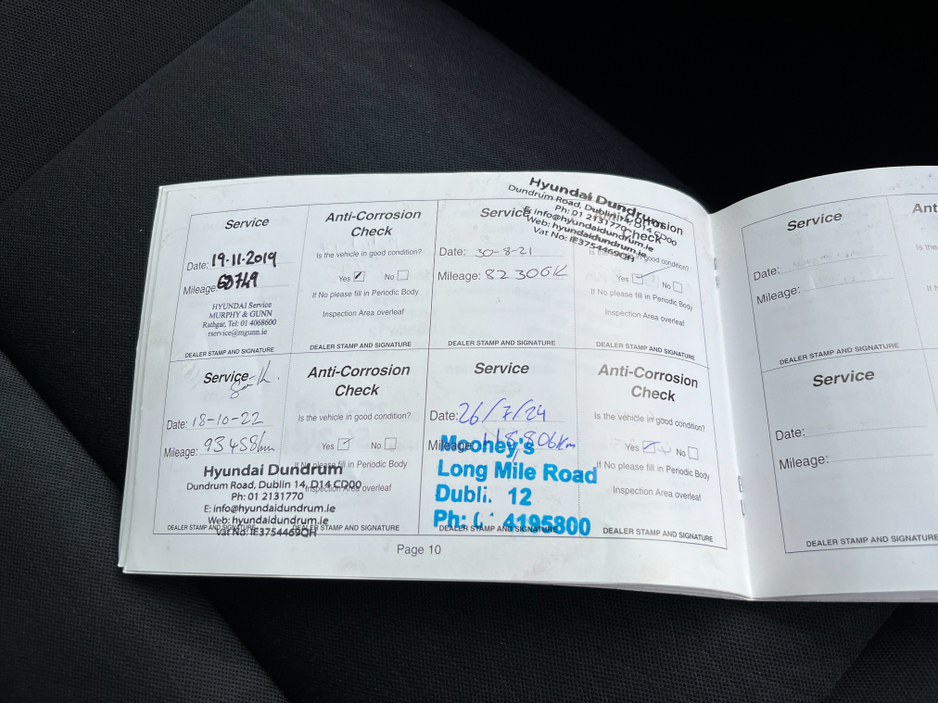 Service
Anti-Corrosion
Check
Date: 19.11.2019
Is the vehicle in good condition?
Yes No
Mileage: 60749
If No please fill in Periodic Body
Inspection Area overleaf
HYUNDAI Service
MURPHY & GUNN
Rathgar, Tel: 01 4068600
rservice@mgunn.ie
DEALER STAMP AND SIGNATURE
DEALER STAMP AND SIGNATURE
Service
Hyundai Dundrum
Dundrum Road, Dublin 14, D14 CD00
Ph: 01 2131770
E: info@hyundaidundrum.ie
Web: hyundaidundrum.ie
Vat No: IE3754469QH
Check
Date: 30-8-21
good condition?
Mileage: 82306K
Yes No
If No please fill in Periodic Body
Inspection Area overleaf
DEALER STAMP AND SIGNATURE
DEALER STAMP AND SIGNATURE
Service
Anti-Corrosion
Check
Date: 18-10-22
Is the vehicle in good condition?
Mileage: 93458km
Yes No
If No please fill in Periodic Body
Inspection Area overleaf
Hyundai Dundrum
Dundrum Road, Dublin 14, D14 CD00
Ph: 01 2131770
E: info@hyundaidundrum.ie
Web: hyundaidundrum.ie
Vat No: IE3754469QH
DEALER STAMP AND SIGNATURE
DEALER STAMP AND SIGNATURE
Service
Anti-Corrosion
Check
Date: 26/7/24
Is the vehicle in good condition?
Mileage: 118,806km
Yes No
If No please fill in Periodic Body
Inspection Area overleaf
Mooney's
Long Mile Road
Dubli. 12
Ph: 4195800
DEALER STAMP AND SIGNATURE
DEALER STAMP AND SIGNATURE
Page 10
Service
Date:
Mileage:
DEALER STAMP AND SIGNATURE
Service
Date:
Mileage:
DEALER STAMP AND SIGNATURE